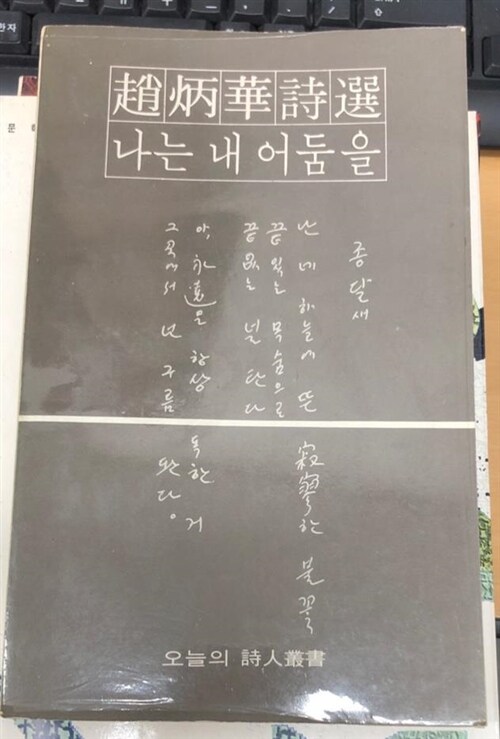 趙炳華詩選
나는 내 어둠을
종달새
난 네 하늘에 뜬 寂寥한 불꽃
끝 있는 목숨으로
끝없는 널 탄다
아, 永遠은 항상 독한 거
그 곳에서 구름
오늘의 詩人叢書
문